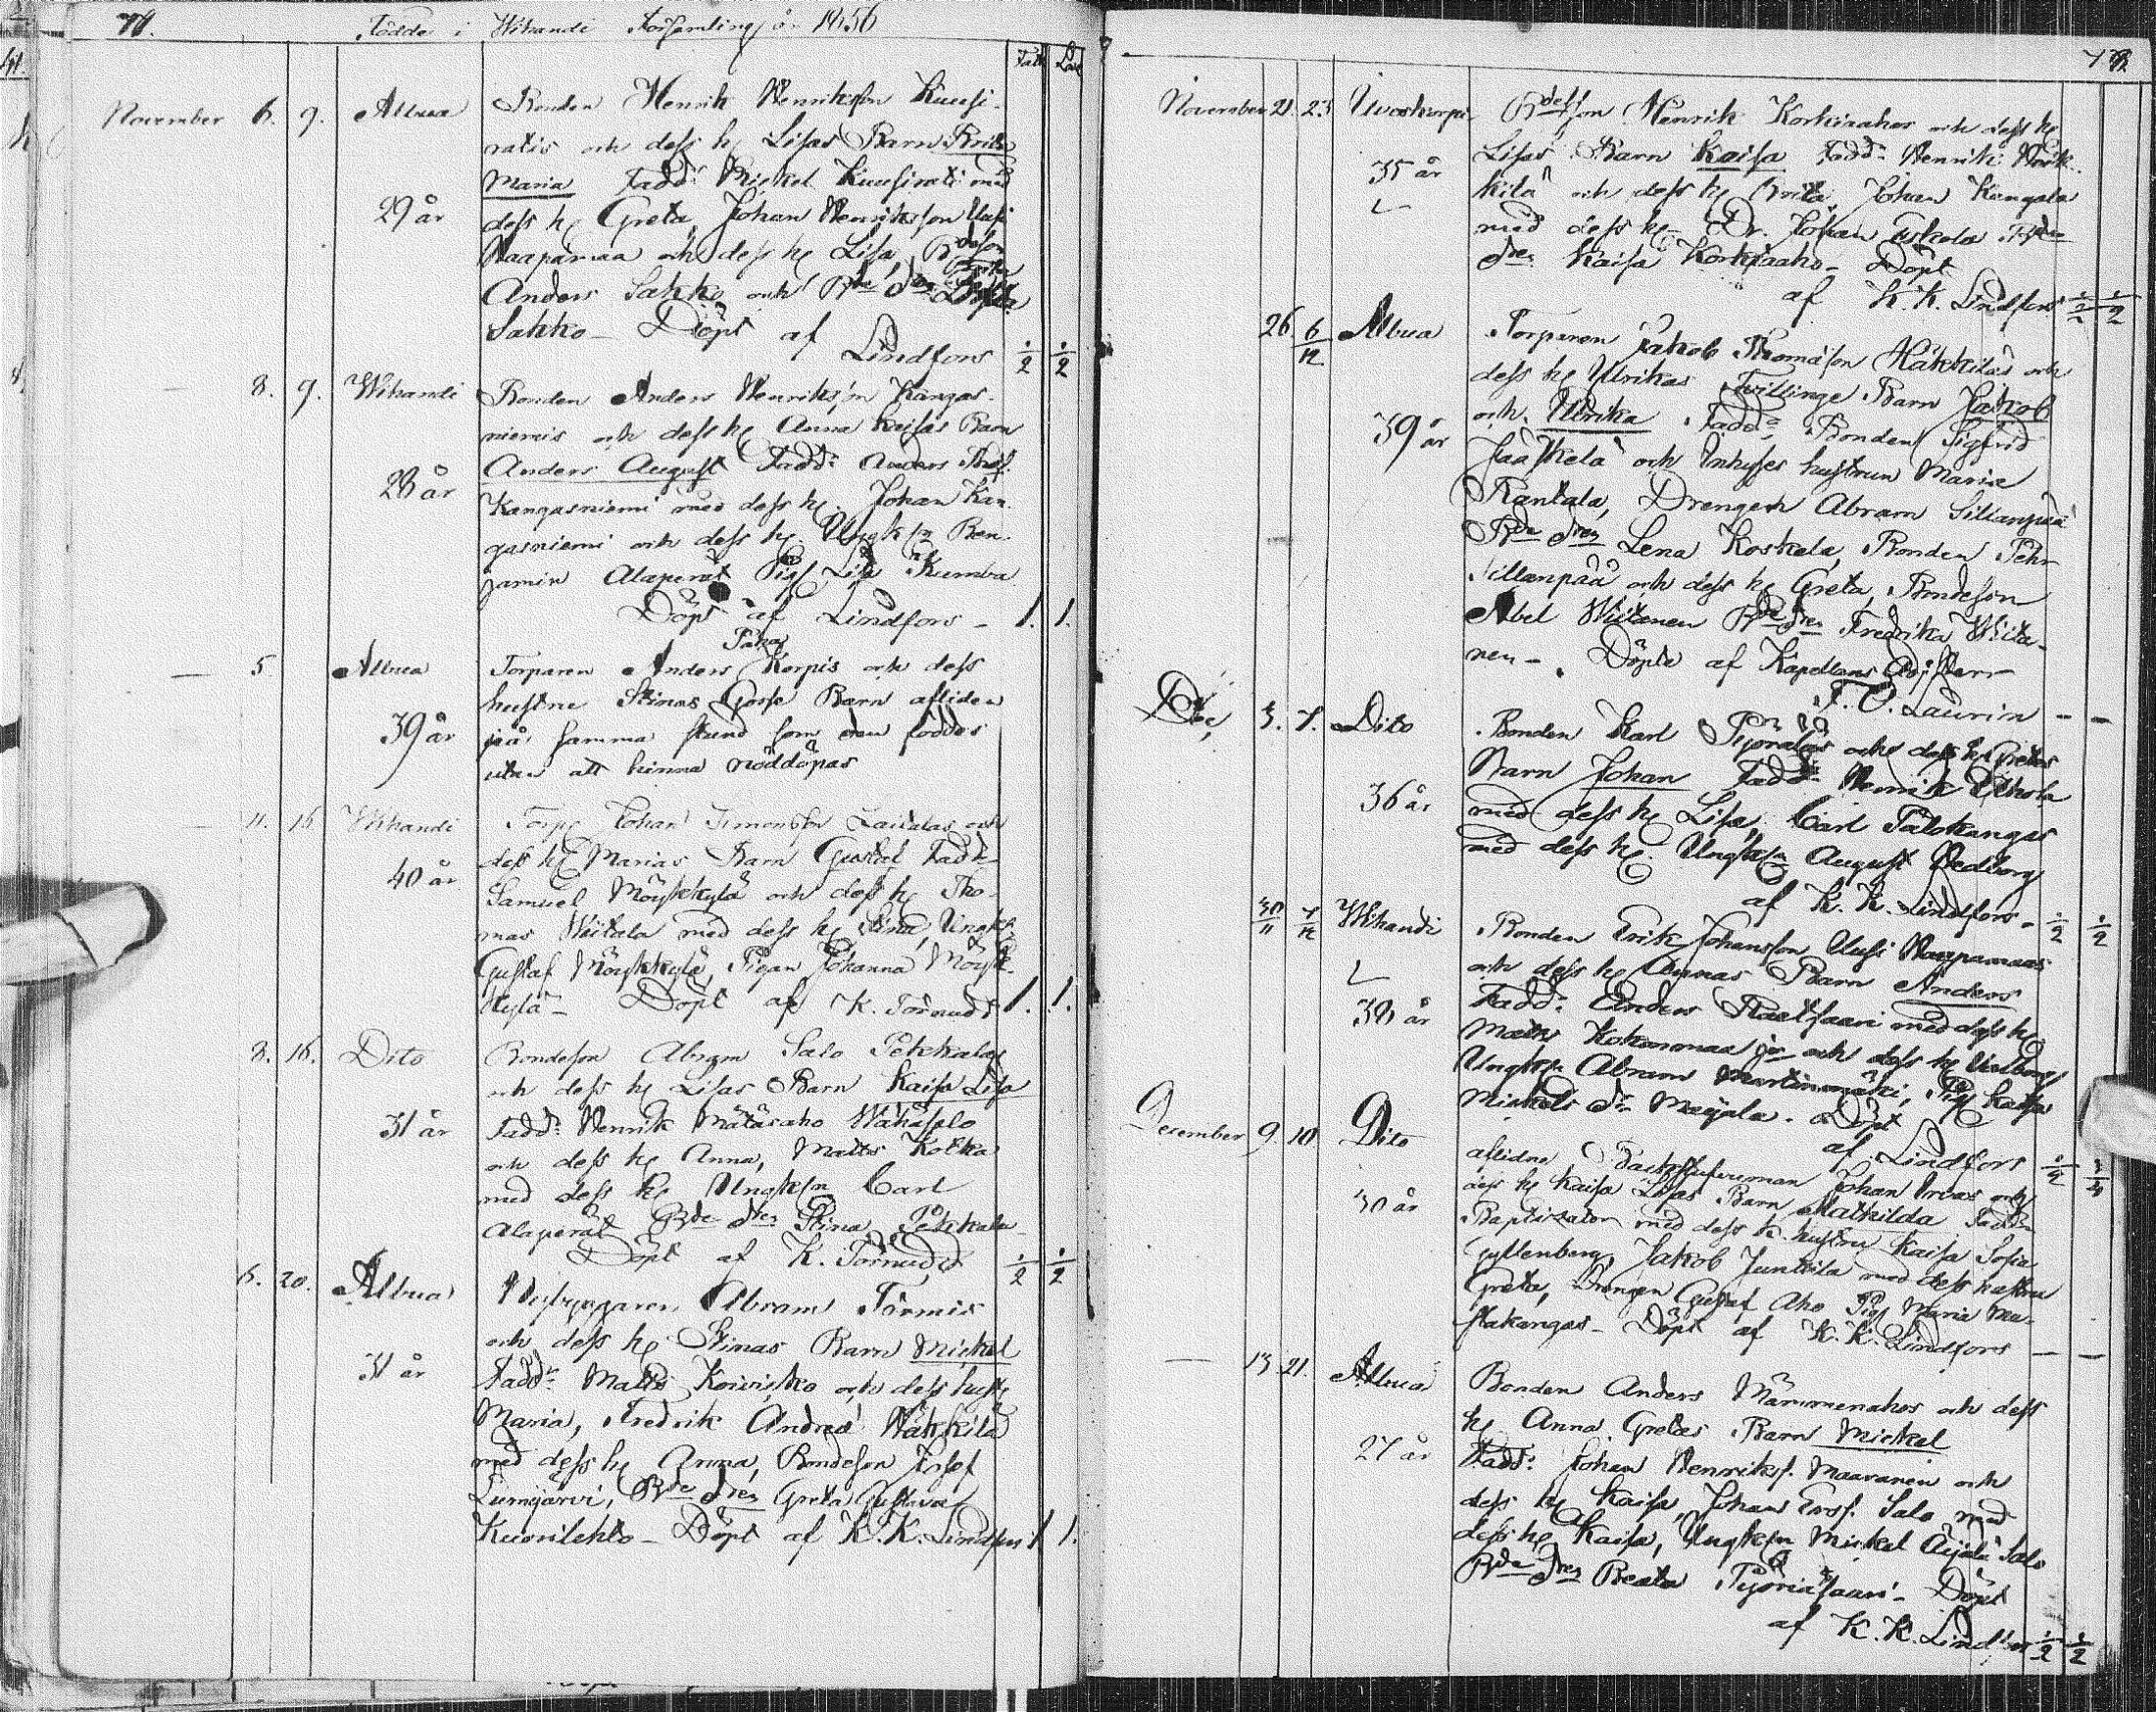 Födde i Wihandi Församling år 1856
Fatt
November 6. 9. Albua Bonden Henrik Henriksson Kuusi-
ratis och dess h. Lisas Barn Brita
Maria Fadd: Mickel Kuusirati med
29 år dess h. Greta, Johan Henriksson Uusi
Haapamaa och dess h. Lisa, Bdeson
Anders Sakko och Bde Dren Brita
Sakko - Döpt af
Lindfors 1/2 1/2
8. 9. Wihandi Bonden Anders Henrikss'n Kangas-
niemis och dess h. Anna Kaisas Barn
Anders August Fadd: Anders
28 år Kangasniemi med dess h. Johan Kan-
gasniemi och dess h. Ungk:n Ben-
jamin Alaperät Pig. Lisa Kumba
Döpt af Lindfors - 1. 1.
5. Albua Torparen Anders Korpis och dess
hustru Stinas Gosse Barn afliden
39 år på samma stund som den föddes
utan att hinna nöddöpas
11. 16 Wihandi Torp. Johan Simonsson Lailalas och
dess h. Marias Barn Gustaf Fadd:
40 år Samuel Möykkylä och dess h. Tho-
mas Wiitala med dess h. Stina, Ungk:
Gustaf Möykkylä, Pigan Johanna Möyk-
kylä - Döpt af K. Törnudd 1. 1.
8. 16. Dito Bondeson Abram Salo Pekkalas
och dess h. Lisas Barn Kaisa Lisa
31 år Fadd: Henrik Mätäsaho Wähäsalo
och dess h. Anna, Matts Kotka
med dess h. Ungk:n Carl
Alaperät Bde Dren Stina Pekkala
Döpt af K. Törnudd 1/2 1/2
15. 20. Albua Nybyggaren Abram Törmis
och dess h. Stinas Barn Mickel
31 år Fadd: Matts Koivisto och dess hust
Maria, Fredrik Andreas Häkkilä
med dess h. Anna, Bondeson Josef
Lumijärvi, Bde Dren Greta Gustava
Kuonilehto - Döpt af K. K. Lindfors 1 1.
November 21. 23 Bdesson Henrik Korkiaahos och dess h.
Lisas Barn Kaisa Fadd: Henrik
35 år och dess h. Brita, Johan Kangala
med dess h. Dr. Johan Eskola
Dren Kaisa Korkiaaho - Döpt
af K. K. Lindfors 1/2 1/2
26 6/12 Albua Torparen Jakob Thomasson Häkkiläs och
dess h. Ulrikas Tvillinge Barn Jakob
39 år och Ulrika Fadd: Bonden Sigfrid
Jääskelä och Inhyses hustrun Maria
Rantala, Drengen Abram Sillanpää
Bde Dren Lena Koskela, Bonden Pehr
Sillanpää och dess h. Greta, Bondeson
Abel Wiitanen Bde Dren Fredrika Wiita-
nen - Döpte af Kapellans Adjten
F. O. Laurin - -
Dec. 3. 7. Dito Bonden Karl Pyöräläs och dess h. Gretas
Barn Johan Fadd: Henrik
36 år med dess h. Lisa, Carl Palokangas
med dess h. Ungk:n August Hedberg
af K. K. Lindfors - 1/2 1/2
30/11 7/12 Wihandi Bonden Erik Johansson Uusi Haapamaas
och dess h. Annas Barn Anders
38 år Fadd: Anders Raatsaari med dess h.
Matts Kokonmaa jr och dess h. Walborg
Ungk:n Abram Martinmäki, Pig. Kaisa
Mickels Dr Maijala. Döpt
af Lindfors 1/2
December 9. 10 Dito aflidne Johan och
30 år dess h. Kaisa Lisas Barn Mathilda Fadd:
Baptisator med dess k. hustru Kaisa Sofia
Gyllenberg, Jakob Junttila med dess hustru
Greta, Drengen Gustaf Aho Pig. Maria Mu-
stakangas - Döpt af K. K. Lindfors - -
13. 21. Albua Bonden Anders Mämmenahos och dess
h. Anna Gretas Barn Mickel
27 år Fadd: Johan Henrikss. Maaranen och
dess h. Kaisa, Johan Salo med
dess h. Kaisa, Ungk:n Mickel Äijälä Salo
Bde Dren Beata Pyöriäsaari - Döpt
af K. K. Lindfors 1/2 1/2